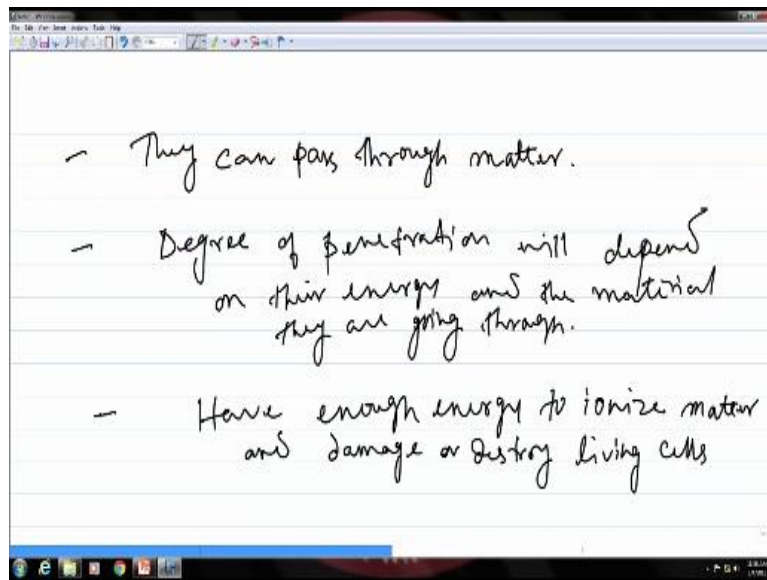 - They can pass through matter.
- Degree of penetration will depend
on their energy and the material
they are going through.
- Have enough energy to ionize matter
and damage or destroy living cells